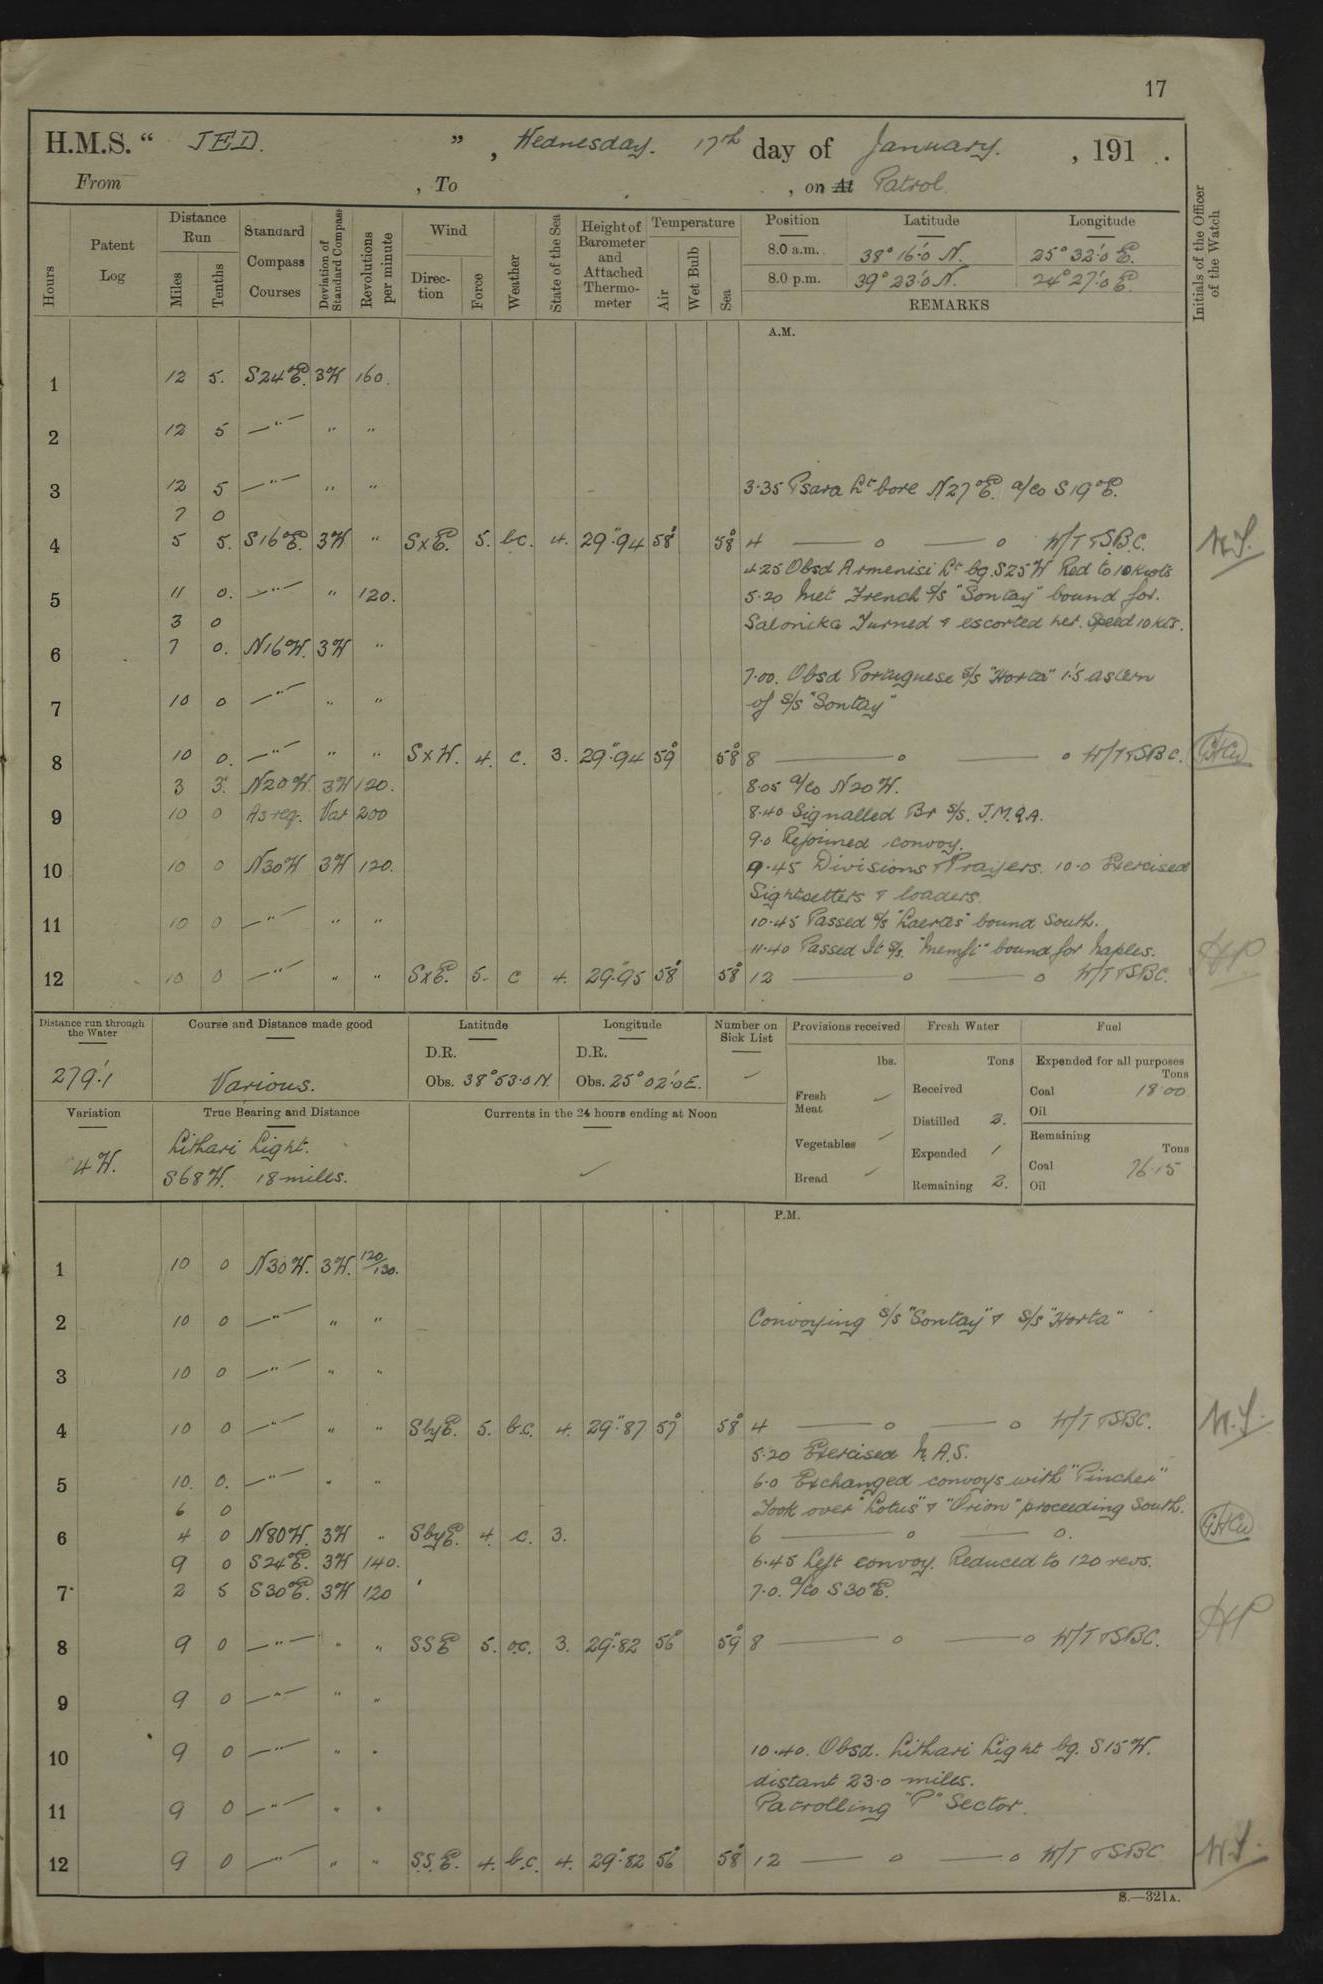 17
H.M.S. “ JED. ” , Wednesday. 17th day of January. , 191 .
From , To , on At Patrol.
Hours
Patent Log
Distance Run
Miles
Tenths
Standard Compass Courses
Deviation of Standard Compass
Revolutions per minute
Wind
Direction
Force
Weather
State of the Sea
Height of Barometer and Attached Thermometer
Temperature
Air
Wet Bulb
Sea
Position Latitude Longitude
8.0 a.m. 38° 16'.0 N. 25° 32'.0 E.
8.0 p.m. 39° 23'.0 N. 24° 27'.0 E.
REMARKS
Initials of the Officer of the Watch
A.M.
1 12 5. S24°E. 3W 160.
2 12 5 —"— " "
3 12 5 —"— " " 3.35 Psara Lt bore N27°E. a/co S19°E.
7 0
4 5 5. S16°E. 3W " SxE. 5. bc. 4. 29".94 58° 58° 4 — o — o W/T & S.B.C. N.S.
4.25 Obsd Armenisi Lt bg. S25W Red to 10 knots
5 11 0. —"— " 120. 5.20 Met French s/s "Sontay" bound for.
3 0 Salonika Turned & escorted her. Speed 10 kts.
6 7 0. N16W. 3W "
7.00. Obsd Portuguese s/s "Horta" 1'.5 astern
7 10 0 —"— " " of s/s "Sontay"
8 10 0. —"— " " SxW. 4. c. 3. 29".94 59° 58° 8 — o — o W/T & SBC.
3 3. N20W. 3W 120. 8.05 a/co N20W.
9 10 0 As req. Var 200 8.40 Signalled Br s/s. J.M.Q.A.
9.0 Rejoined convoy.
10 10 0 N30W 3W 120. 9.45 Divisions & Prayers. 10.0 Exercised
Sightsetters & loaders.
11 10 0 —"— " " 10.45 Passed s/s "Laertes" bound South.
11.40 Passed It s/s. "Memfi" bound for Naples.
12 10 0 —"— " " SxE. 5. c 4. 29".95 58° 58° 12 — o — o W/T & SBC. HP
Distance run through the Water
279'.1
Course and Distance made good
Various.
Latitude
D.R.
Obs. 38° 53'.0 N.
Longitude
D.R.
Obs. 25° 02'.0 E.
Number on Sick List
Provisions received
lbs.
Fresh Meat
Vegetables
Bread
Fresh Water
Tons
Received
Distilled 2.
Expended 1
Remaining 2.
Fuel
Expended for all purposes
Tons
Coal 18.00
Oil
Remaining
Tons
Coal 76.15
Oil
Variation
4W.
True Bearing and Distance
Lithari Light.
S68W. 18 miles.
Currents in the 24 hours ending at Noon
P.M.
1 10 0 N30W. 3W. 120/130.
2 10 0 —"— " " Convoying s/s "Sontay" & s/s "Horta"
3 10 0 —"— " "
4 10 0 —"— " " SbyE. 5. b.c. 4. 29".87 57° 58° 4 — o — o W/T & SBC. N.S.
5.20 Exercised N.A.S.
5 10. 0. —"— " " 6.0 Exchanged convoys with "Pincher"
6 0 Took over "Lotus" & "Orion" proceeding South.
6 4 0 N80W. 3W " SbyE. 4. c. 3. 6 — o — o.
9 0 S24°E. 3W 140. 6.45 Left convoy. Reduced to 120 revs.
7 2 5 S30°E. 3W 120 7.0. a/co S30°E.
8 9 0 —"— " " SSE 5. o.c. 3. 29".82 56° 59° 8 — o — o W/T & SBC. HP
9 9 0 —"— " "
10 9 0 —"— " " 10.40. Obsd. Lithari Light bg. S15W.
distant 23.0 miles.
11 9 0 —"— " " Patrolling "P" Sector.
12 9 0 —"— " " S.S.E. 4. b.c. 4. 29".82 56° 58° 12 — o — o W/T & SBC N.S.
S.—321A.